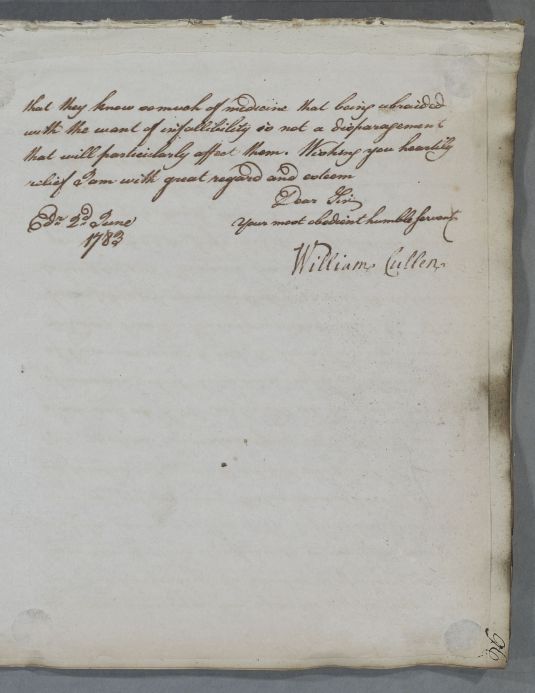 that they know so much of medicine that being ubraided
with the want of infallibility is not a disparagement
that will particularly affect them. Wishing you heartily
relief I am with great regard and esteem
Dear Sir
Edr 2d June
1783
Your most obedient humble servant
William Cullen